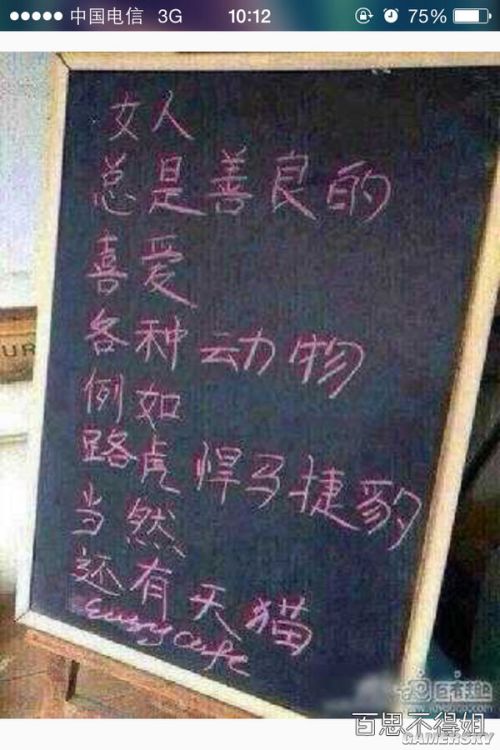 中国电信 3G 10:12 75%
女人
总是善良的
喜爱
各种动物
例如
路虎悍马捷豹
当然
还有天猫
UR
百思不得姐
GAMERSKY